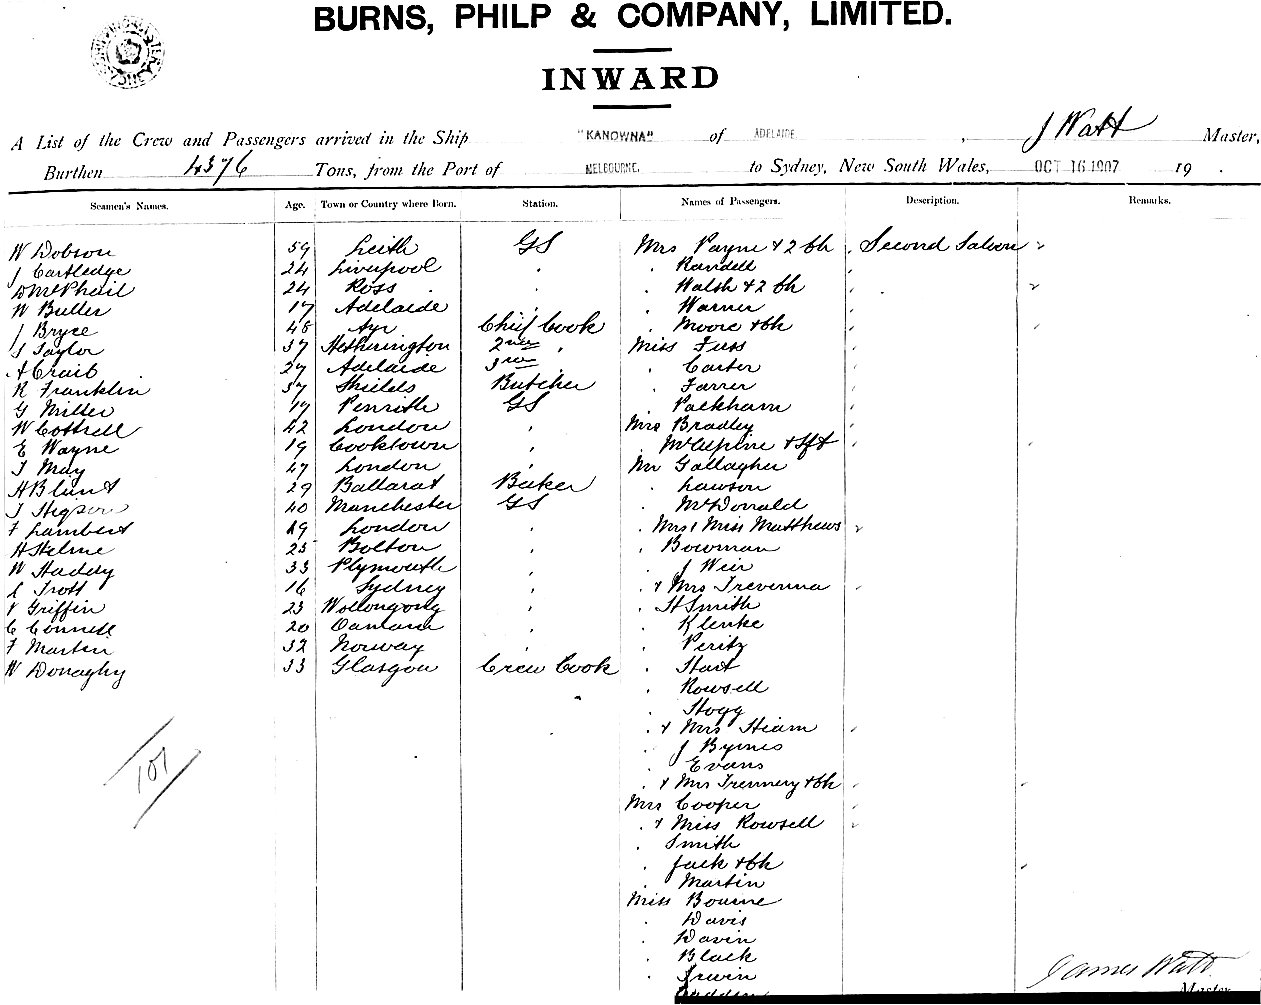 BURNS, PHILP & COMPANY, LIMITED.
INWARD
A List of the Crew and Passengers arrived in the Ship "KANOWNA" of ADELAIDE, J Watt Master,
Burthen 4376 Tons, from the Port of MELBOURNE. to Sydney, New South Wales, OCT 16 1907 19 .
Seamen's Names. Age. Town or Country where Born. Station. Names of Passengers. Description. Remarks.
W Dobson 59 Leith GS Mrs Payne & 2 ch Second Saloon
J Cartledge 24 Liverpool " Randell
D McPhail 24 Ross " Walsh & 2 ch
W Butler 17 Adelaide " Warner
J Bryce 48 Ayr Chief Cook " Moore & ch
J Taylor 37 Hetherington 2nd " Miss Fuss
A Craib 27 Adelaide 3rd " Carter
R Franklin 57 Shields Butcher " Farrer
G Miller 19 Penrith GS " Packham
W Cottrell 42 London " Mrs Bradley
E Wayne 19 Cooktown " McAlpine &
T May 47 London " Mr Gallagher
H Blunt 29 Ballarat Baker " Lawson
J Higson 40 Manchester GS " McDonald
F Lambert 19 London " Mrs & Miss Matthews
H Helme 25 Bolton " Bowman
W Haddy 33 Plymouth " J Weir
L Trott 16 Sydney " & Mrs Trevenna
V Griffin 23 Wollongong " H Smith
C Connell 20 Oamaru " Klenke
F Martin 32 Norway " Peritz
W Donaghy 33 Glasgow Crew Cook " Hart
" Rowsell
" Hogg
" & Mrs Hiam
" J Byrnes
" Evans
" & Mrs Trennery & ch
Mrs Cooper
" & Miss Rowsell
" Smith
" Jack & ch
" Martin
Miss Bourne
" Davis
" Davin
" Black
" Irwin
101
James Watt
Master